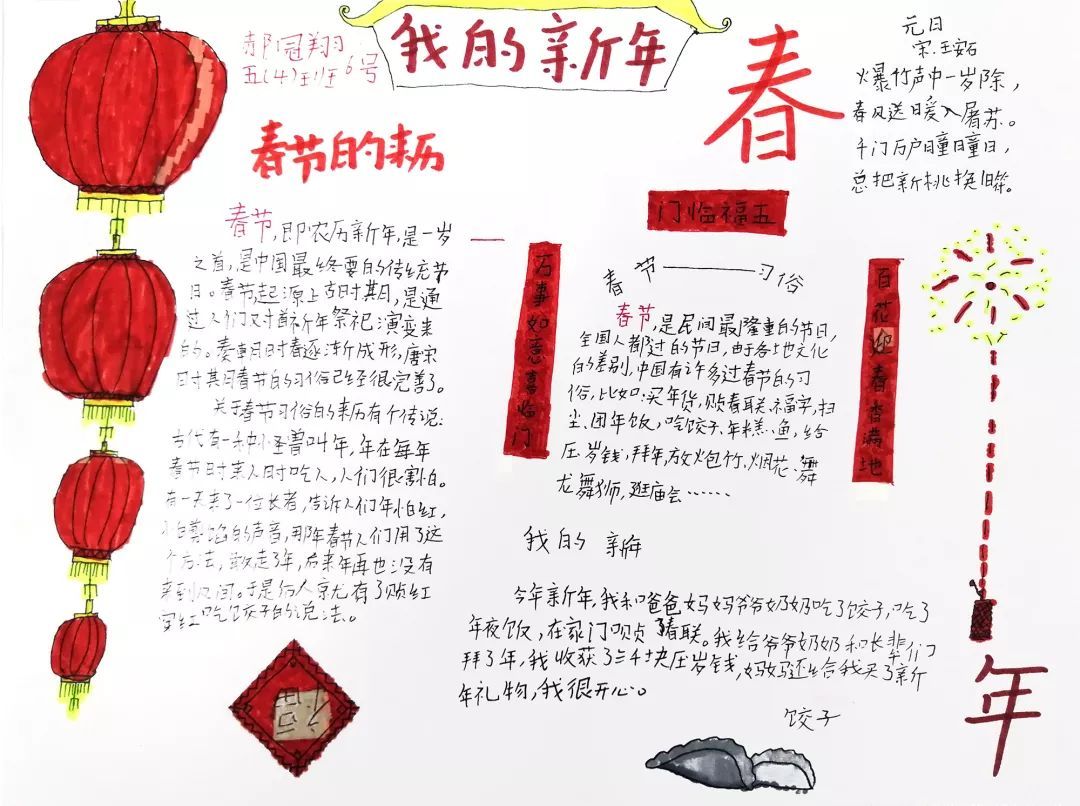 我的新年
郝冠翔
五(4)班 6号
春节的来历
春节,即农历新年,是一岁
之首,是中国最终要的传统节
日。春节起源上古时其月,是通
过人们对首祈年祭祀演变来
的。秦朝时春逐渐成形,唐宋
时其月春节的习俗已经很完善了。
关于春节习俗的来历有个传说:
古代有一种小怪兽叫年,年在每年
春节时来人时吃人,人们很害怕。
有一天来了一位长者,告诉人们年怕红,
的声音,那年春节人们用了这
个方法,赶走了年,后来年再也没有
来到人间。于是后人就有了贴红
吃饺子的说法。
福
春
五福临门
万事如意喜临门
百花迎春香满地
春节——习俗
春节,是民间最隆重的节日,
全国人都过的节日,由于各地文化
的差别,中国有许多过春节的习
俗,比如:买年货,贴春联、福字,扫
尘、团年饭,吃饺子、年糕、鱼,给
压岁钱,拜年,放火包竹、烟花、舞
龙舞狮,逛庙会……
我的新年
今年新年,我和爸爸妈妈爷爷奶奶吃了饺子,吃了
年夜饭,在家门贴春联。我给爷爷奶奶和长辈们
拜了年,我收获了三千块压岁钱,妈妈还给我买了新
年礼物,我很开心。
饺子
元日
宋.王安石
火暴竹声中一岁除,
春风送日暖入屠苏。
千门万户曈曈日,
总把新桃换旧符。
年